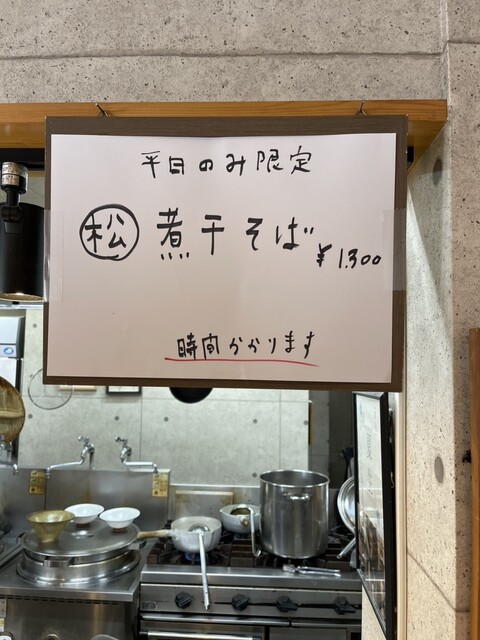 平日のみ限定
松 煮干そば
¥1.300
時間かかります